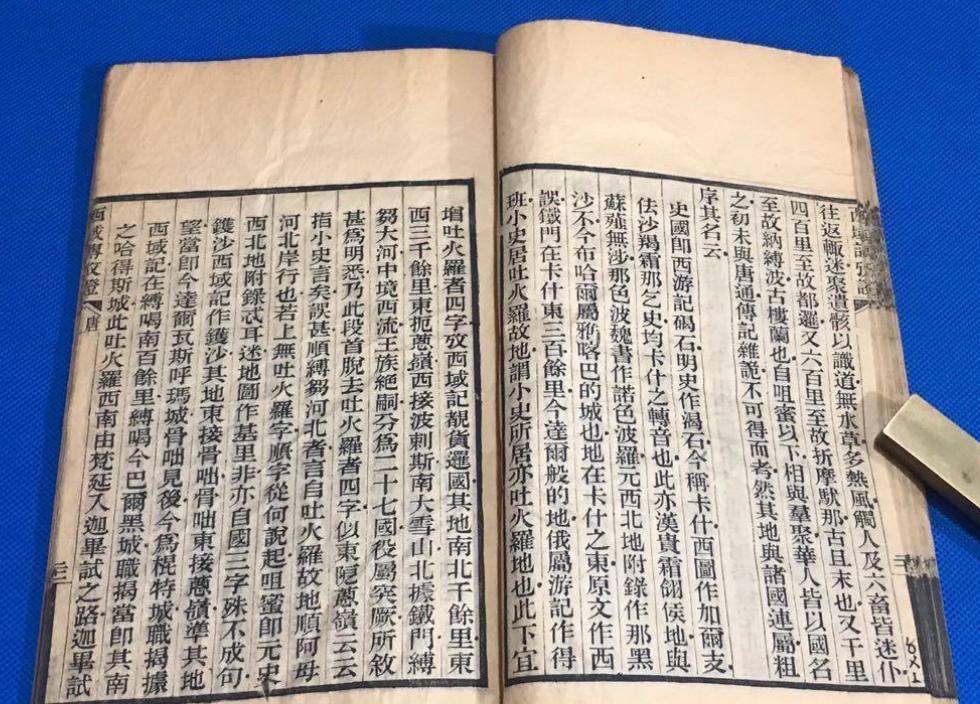 往返輙迷聚遺骸以識道無水草多熱風觸人及六畜皆迷仆
四百里至故都邏又六百里至故折摩馱那古且末也又千里
至故納縛波古樓蘭也自咀蜜以下相與羣聚華人皆以國名
之初未與唐通傳記雜詭不可得而考然其地與諸國連屬粗
序其名云
史國卽西游記碣石明史作渴石今稱卡什西圖作加爾支
佉沙羯霜那乞史均卡什之轉音也此亦漢貴霜翖侯地與
蘇薤無涉那色波魏書作諾色波羅元西北地附錄作那黑
沙不今布哈爾屬雅喀巴的城也地在卡什之東原文作西
誤鐵門在卡什東三百餘里今達爾般的地俄屬游記作得
班小史居吐火羅故地謂小史所居亦吐火羅地也此下宜
增吐火羅者四字攷西域記覩貨邏國其地南北千餘里東
西三千餘里東扼蔥嶺西接波剌斯南大雪山北據鐵門縛
芻大河中境西流王族絕嗣分爲二十七國役屬突厥所敘
甚爲明悉乃此段首脫去吐火羅者四字似東隁蔥嶺云云
指小史言矣誤甚順縛芻河北者言自吐火羅故地順阿母
河北岸行也若上無吐火羅字順字從何說起咀蜜卽元史
西北地附錄忒耳迷地圖作基里非亦自國三字殊不成句
鑊沙西域記作鑊沙其地東接骨咄骨咄東接蔥嶺準其地
望當卽今達爾瓦斯呼瑪城骨咄見後今爲棍特城職揭據
西域記在縛喝南百餘里縛喝今巴爾黑城職揭當卽其南
之哈得斯城此吐火羅西南由梵延入迦畢試之路迦畢試
西域傳攷證
唐
三